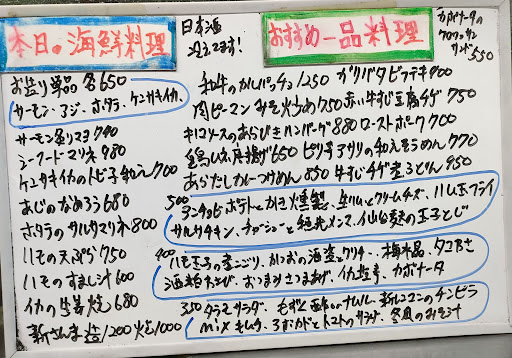 本日の海鮮料理
お造り単品 各650
サーモン・アジ・ホタテ・ケンサキイカ
サーモン
シーフードマリネ 980
ケンサキイカのトビ子和え 700
あじのなめろう 680
ホタテのサルサマリネ 800
ハモの天ぷら 750
ハモのすまし汁 600
イカの生姜焼 680
新さんま 造1200 焼1000
日本酒
おすすめ一品料理
カボナータの
クロワッサン
サンド 550
和牛のカルパッチョ 1250 ガリバタビフテキ 900
肉ピーマンみそ炒め 750 赤い牛すじ豆腐チゲ 750
キノコソースのあらびきハンバーグ 880 ローストポーク 700
唐揚げ 650 ピリ辛アサリの和えそうめん 770
あらだしカレーつけめん 850 牛すじチゲ煮うどん 950
500
ヤンニョムポテトとかき燻製、生ハムとクリームチーズ、ハムカツフライ
サルサチキン、チャーシューと穂先メンマ、仙台麩の玉子とじ
400
ハモ玉子の煮こごり、かつおの酒盗とクリチ、梅水晶、タコわさ
酒粕、おつまみさつまあげ、イカ塩辛、カボナータ
350
タラモサラダ、もずく酢、ナムル、新レンコンのキンピラ
mixキムチ、アボカドとトマトのサラダ、冬瓜のみそ汁